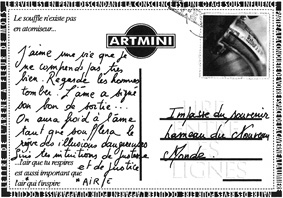 REVEIL EST EN PENTE DESCENDANTE LA CONSCIENCE EST UNE OTAGE SOUS INFLUENCE
Le souffle n'existe pas
en atomiseur...
ARTMINI
J'aime une vie que je
ne comprends pas très
bien. Regarde les hommes
tomber. L'âme a signé
son bon de sortie...
On aura froid à l'âme
tant que soufflera le
rêve des illusions dangereuses
Suis tes intuitions de justesse
et de justice
...l'air que tu respires
est aussi important que
l'air qui t'inspire
*AIR/E
Impasse du souvenir
Hameau du Nouveau
Monde.
LIGNES